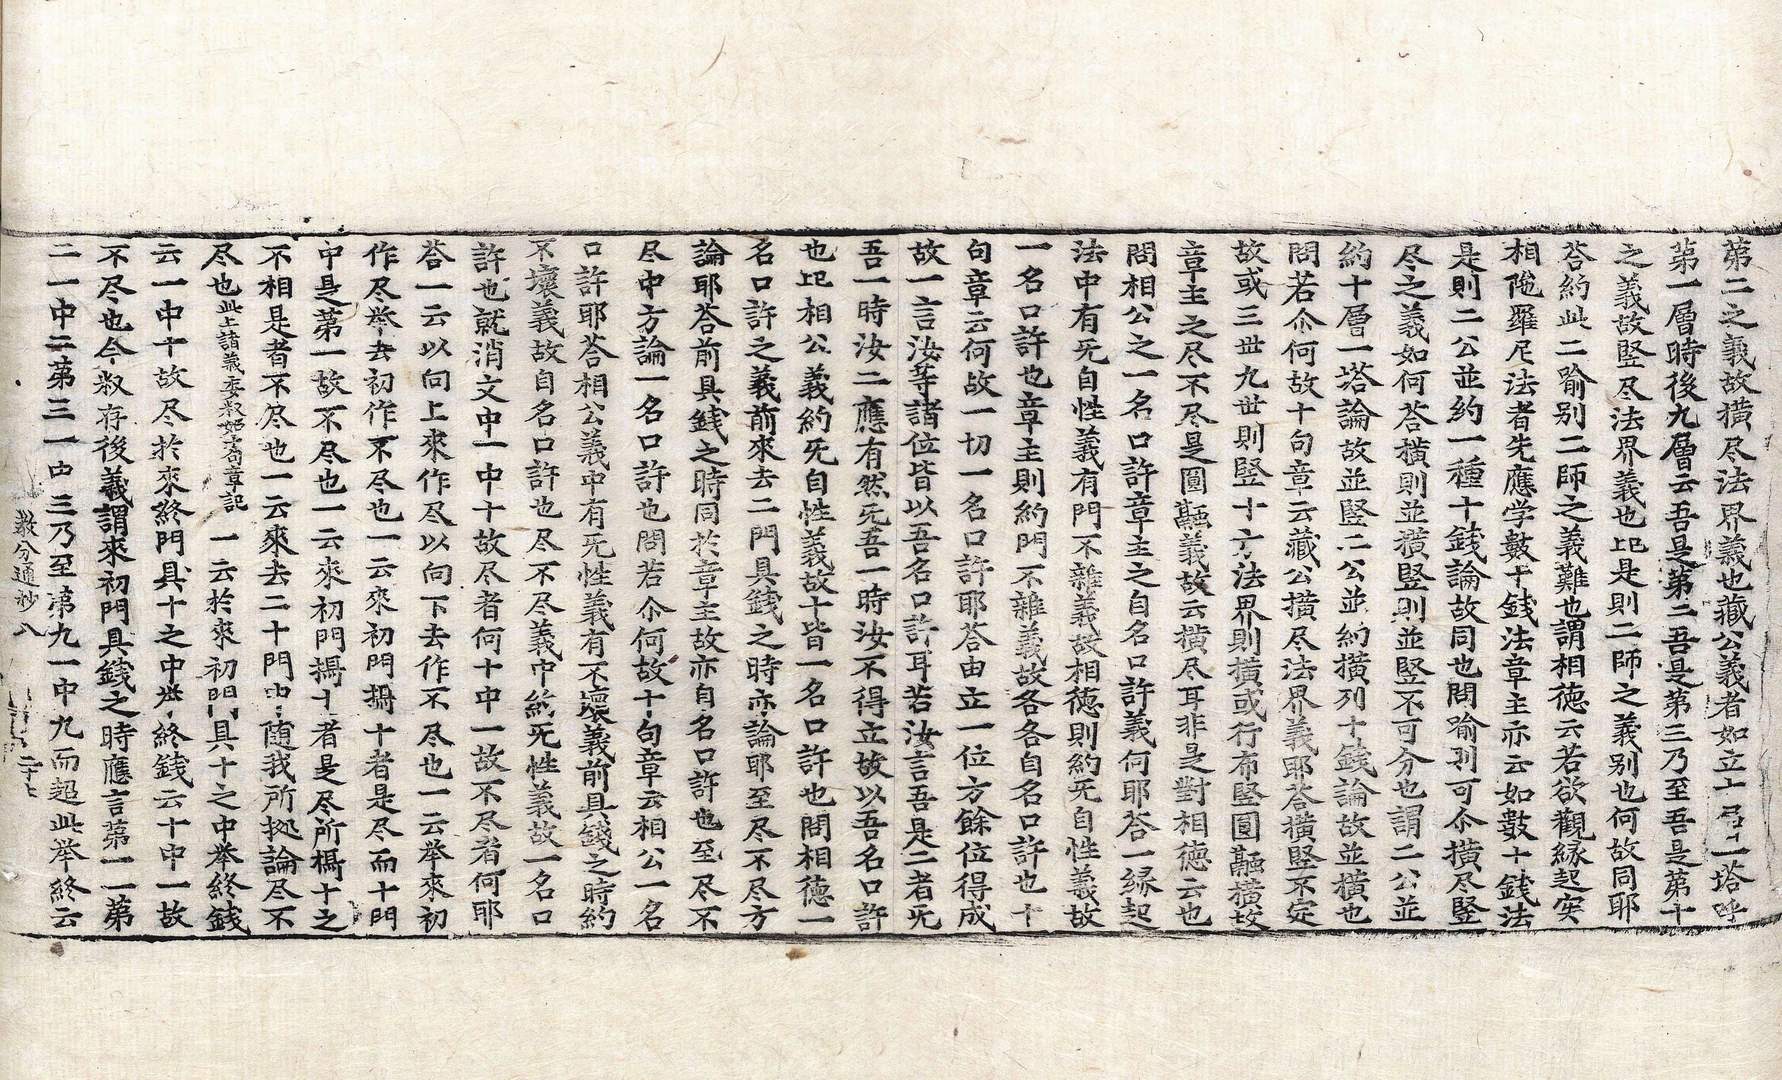 第二之義故橫尽法界義也藏公義者如立十层一塔呼
第一層時後九層云吾是第二吾是第三乃至吾是第十
之義故竪尽法界義也此是則二師之義別也何故同耶
答約此二喻別二師之義難也謂相德云若欲觀緣起实
相陁羅尼法者先應学數十錢法章主亦云如數十錢法
是則二公並約一種十錢論故同也問喻別可尒橫尽竪
尽之義如何答橫則並橫竪則並竪不可分也謂二公並
約十層一塔論故並竪二公並約橫列十錢論故並橫也
問若尒何故十句章云藏公橫尽法界義耶答橫竪不定
故或三世九世則竪十方法界則橫或行布竪圓融橫故
章主之尽不尽是圓融義故云橫尽耳非是對相德云也
問相公之一名口許章主之自名口許義何耶答一緣起
法中有旡自性義有門不雜義故相德則約旡自性義故
一名口許也章主則約門不雜義故各各自名口許也十
句章云何故一切一名口許耶答由立一位方餘位得成
故一言汝等諸位皆以吾名口許耳若汝言吾是二者旡
吾一時汝二應有然旡吾一時汝不得立故以吾名口許
也此相公義約旡自性義故十皆一名口許也問相德一
名口許之義前來去二門具錢之時亦論耶至尽不尽方
論耶答前具錢之時同於章主故亦自名口許也至尽不
尽中方論一名口許也問若尒何故十句章云相公一名
口許耶答相公義中有旡性義有不壞義前具錢之時約
不壞義故自名口許也尽不尽義中約旡性義故一名口
許也就消文中一中十故尽者何十中一故不尽者何耶
答一云以向上來作尽以向下去作不尽也一云举來初
作尽举去初作不尽也一云來初門攝十者是尽而十門
中是第一故不尽也一云來初門攝十者是尽所攝十之
不相是者不尽也一云來去二十門中随我所拠論尽不
尽也此上諸義委叙如斋章記一云於來初門具十之中举終錢
云一中十故尽於來終門具十之中举終錢云十中一故
不尽也今叙存後義謂來初門具錢之時應言第一一第
二一中二第三一中三乃至第九一中九而超此举終云
教分通抄八　二十七